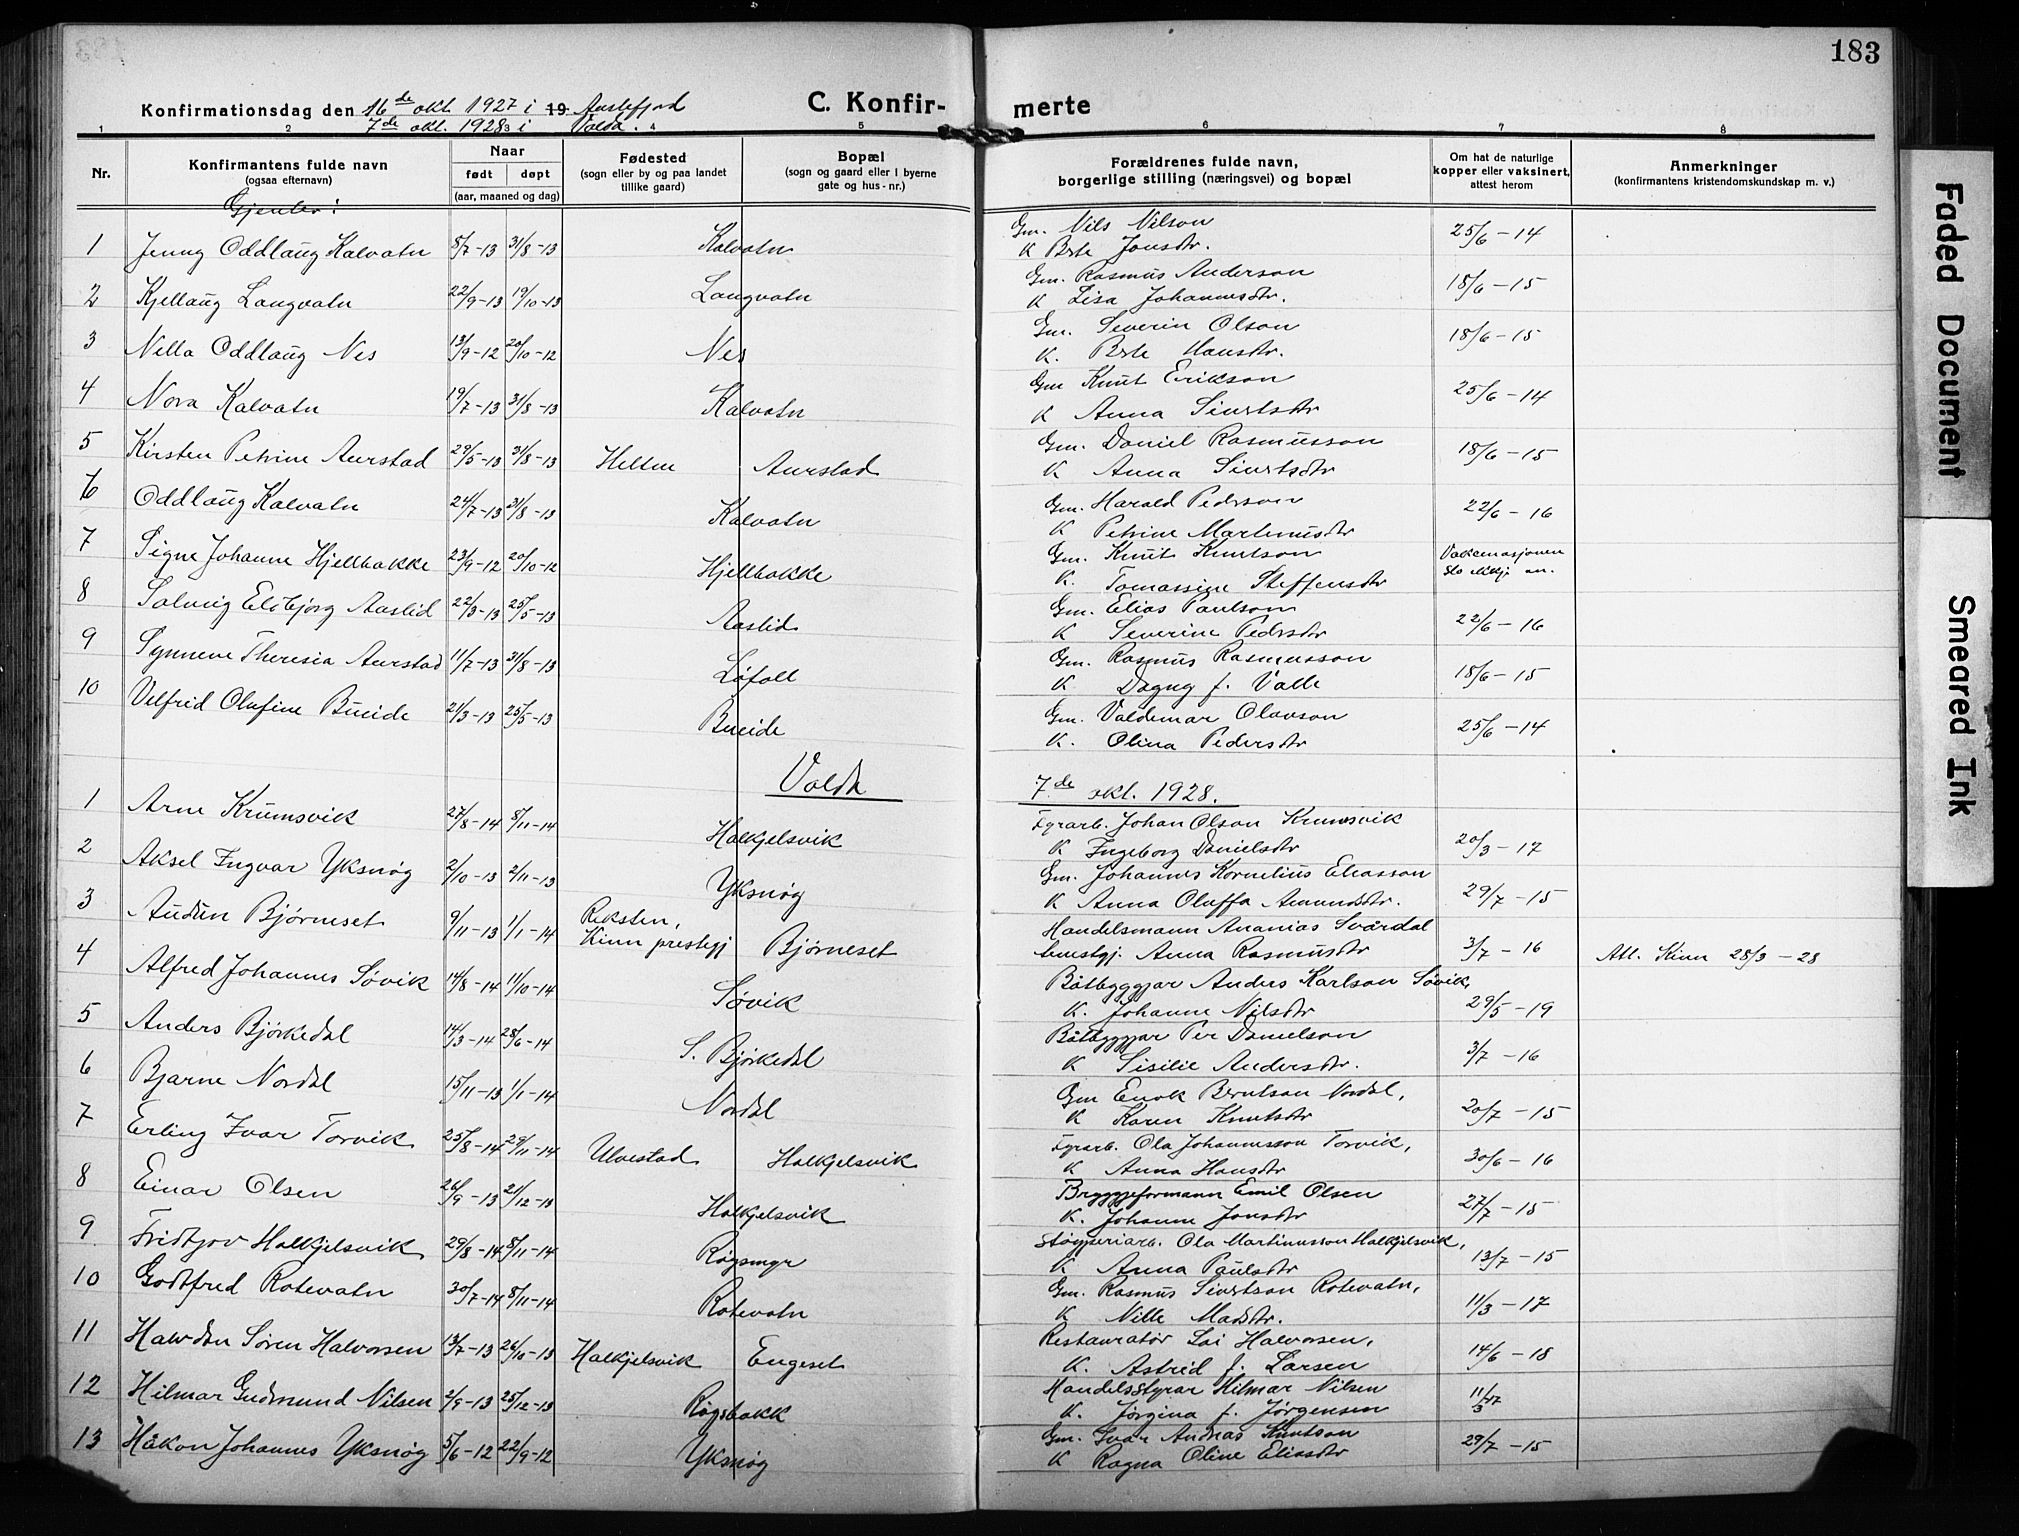 183
Konfirmationsdag den 16de okt. 1927 i 19 Austefjord
7de okt. 1928 i Volda.
C. Konfir- merte
1 2 3 4 5 6 7 8
Nr. Konfirmantens fulde navn (ogsaa efternavn) Naar født døpt (aar, maaned og dag) Fødested (sogn eller by og paa landet tillike gaard) Bopæl (sogn og gaard eller i byerne gate og hus-nr.) Forældrenes fulde navn, borgerlige stilling (næringsvei) og bopæl Om hat de naturlige kopper eller vaksinert, attest herom Anmerkninger (konfirmantens kristendomskundskap m. v.)
Gjenter:
1 Jenny Oddlaug Kalvatn 5/7-13 31/8-13 Kalvatn Gm. Nils Nilson K Brte Jonsdtr. 25/6-14
2 Kjellaug Langvatn 22/9-13 19/10-13 Langvatn Gm. Rasmus Anderson K Lisa Johannesdtr. 18/6-15
3 Nella Oddlaug Nes 13/9-12 20/10-12 Nes Gm. Severin Olson K. Brte Hansdtr. 18/6-15
4 Nora Kalvatn 19/7-13 31/8-13 Kalvatn Gm Knut Erikson K Anna Sivertsdtr 25/6-14
5 Kirsten Petrine Aurstad 29/5-13 31/8-13 Heltne Aurstad Gm. Daniel Rasmusson K Anna Sivertsdtr 18/6-15
6 Oddlaug Kalvatn 24/7-13 31/8-13 Kalvatn Gm. Harald Pederson K Petrine Martinusdtr 22/6-16
7 Signe Johanne Hjellbakke 23/9-12 20/10-12 Hjellbakke Gm. Knut Knutson K. Tomassine Steffensdtr Vaksinasjonen slo ikkje an.
8 Solveig Elsbjørg Aaslid 22/3-13 25/5-13 Aaslid Gm. Elias Paulson K Severine Pedersdtr 22/6-16
9 Synneve Theresia Aurstad 11/7-13 31/8-13 Løfoll Gm. Rasmus Rasmusson K Dagny f. Valle 18/6-15
10 Velfrid Olufine Bueide 21/3-13 25/5-13 Bueide Gm. Valdemar Olavson K. Olina Pedersdtr 25/6-14
Volda 7de okt. 1928.
1 Arne Krumsvik 27/8-14 8/11-14 Halkjelsvik Fyrarb. Johan Olson Krumsvik K Ingeborg Danielsdtr 20/3-17
2 Aksel Ingvar Yksnøy 2/10-13 2/11-13 Yksnøy Gm. Johannes Kornelius Eliasson K Anna Oluffa Amundsdtr. 29/7-15
3 Audun Bjørneset 9/11-13 1/1-14 Reksten, Kinn prestegj Bjørneset Handelsmann Ananias Svårdal heimstgj. Anna Rasmusdtr 3/7-16 Att. Kinn 28/3-28
4 Alfred Johannes Søvik 14/8-14 11/10-14 Søvik Båtbyggjar Anders Karlson Søvik, K. Johanne Nilsdtr 29/5-19
5 Anders Bjørkedal 14/3-14 28/6-14 S. Bjørkedal Båtbyggjar Per Danielson K Sisilie Andersdtr. 3/7-16
6 Bjarne Nordal 15/11-13 1/1-14 Nordal Gm Enok Berntson Nordal, K Karen Knutsdtr 20/7-15
7 Erling Ivar Torvik 25/8-14 29/11-14 Ulvestad Halkjelsvik Fyrarb. Ola Johannesson Torvik, K Anna Hansdtr 30/6-16
8 Einar Olsen 26/9-13 21/12-13 Halkjelsvik Bryggjeformann Emil Olsen K. Johanne Jonsdtr 27/7-15
9 Fridtjov Halkjelsvik 29/8-14 8/11-14 Røysmyr Støyperiarb. Ola Martinusson Halkjelsvik, K Anna Paulsdtr 13/7-15
10 Godtfred Rotevatn 30/7-14 8/11-14 Rotevatn Gm. Rasmus Sivertson Rotevatn, K Nille Madsdtr. 11/3-17
11 Halvdan Søren Halvorsen 13/7-13 26/10-13 Halkjelsvik Engeset Restauratør Lai Halvorsen, K. Astrid f. Larsen 14/6-18
12 Hilmar Gudmund Nilsen 2/9-13 25/12-13 Røysbakk Handelsstyrar Hilmar Nilsen K. Jørgina f. Jørgensen 11/3 17
13 Håkon Johannes Yksnøy 5/6-12 22/9-12 Yksnøy Gm. Ivar Andreas Knutson K Ragna Oline Eliasdtr 29/7-15
Faded Document
Smeared Ink